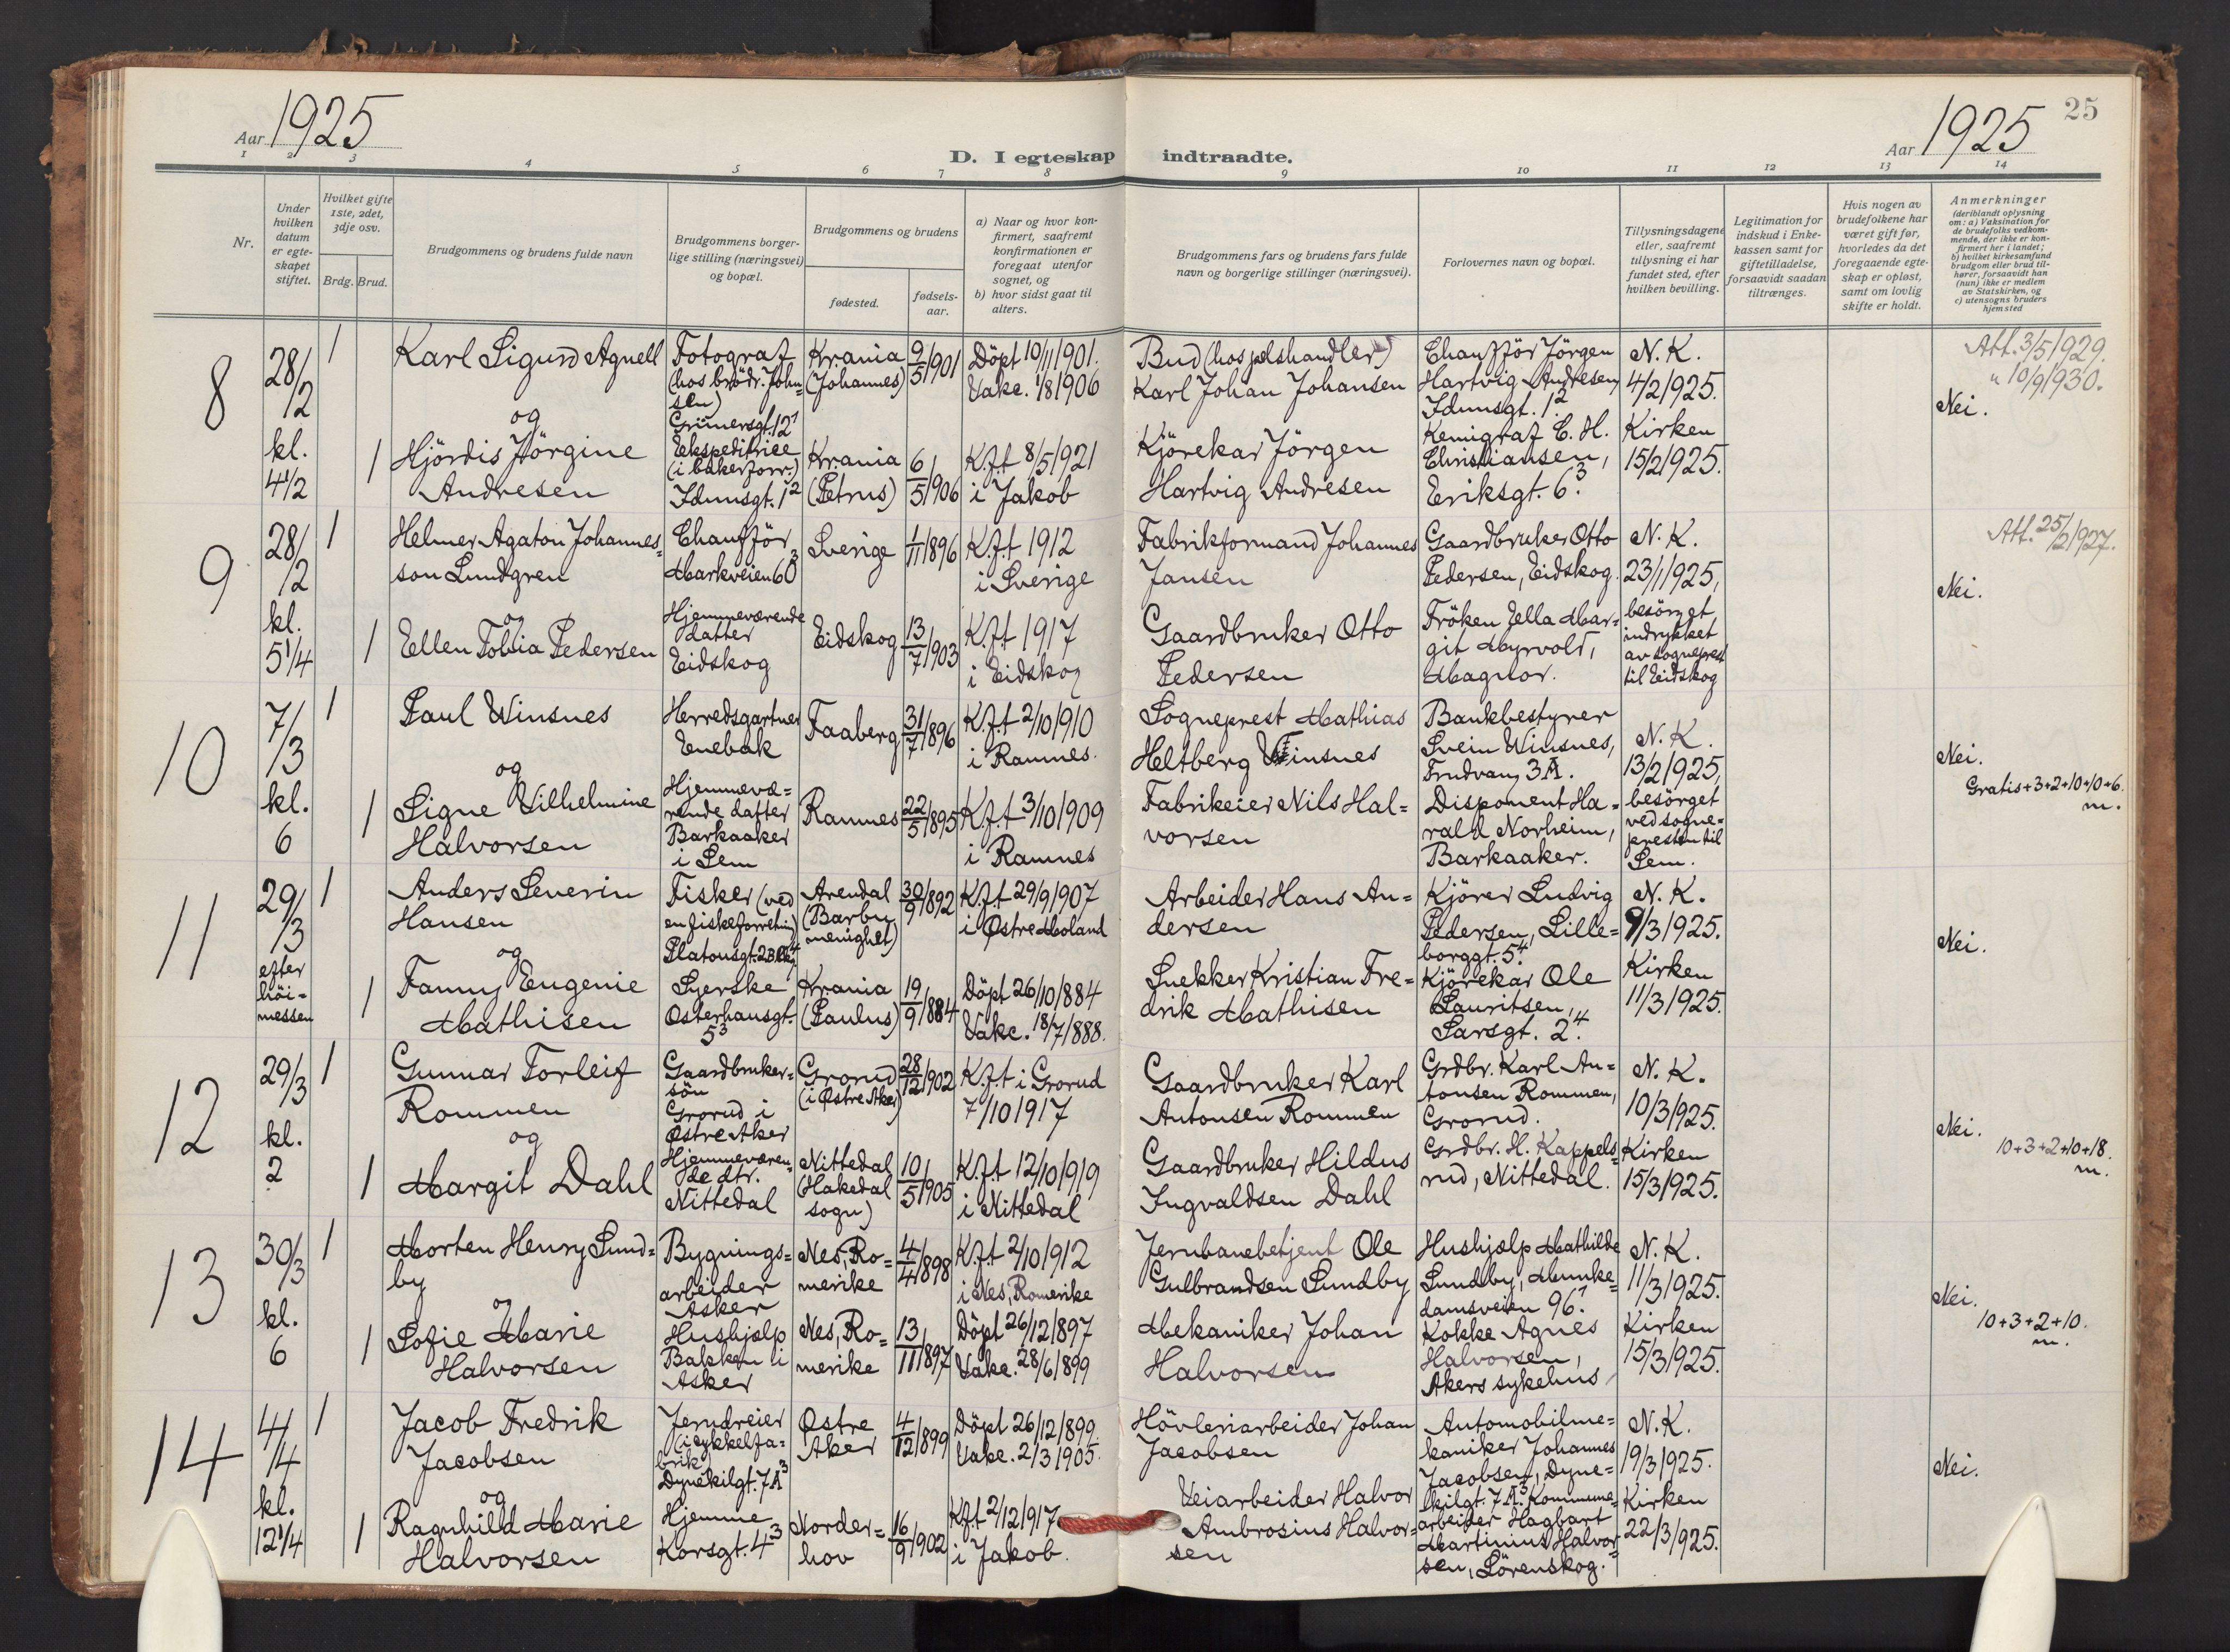 Aar 1925
D. I egteskap indtraadte.
Aar 1925
25
1 2 3 4 5 6 7 8 9 10 11 12 13 14
Nr.
Under hvilken datum er egteskapet stiftet.
Hvilket gifte 1ste, 2det, 3dje osv.
Brdg. Brud.
Brudgommens og brudens fulde navn
Brudgommens borgerlige stilling (næringsvei) og bopæl.
Brudgommens og brudens
fødested.
fødselsaar.
a) Naar og hvor konfirmert, saafremt konfirmationen er foregaat utenfor sognet, og
b) hvor sidst gaat til alters.
Brudgommens fars og brudens fars fulde navn og borgerlige stillinger (næringsvei).
Forlovernes navn og bopæl.
Tillysningsdagene eller, saafremt tillysning ei har fundet sted, efter hvilken bevilling.
Legitimation for indskud i Enkekassen samt for giftetilladelse, forsaavidt saadan tiltrænges.
Hvis nogen av brudefolkene har været gift før, hvorledes da det foregaaende egteskap er opløst, samt om lovlig skifte er holdt.
Anmerkninger
(deriblandt oplysning om: a) Vaksination for de brudefolks vedkommende, der ikke er konfirmert her i landet; b) hvilket kirkesamfund brudgom eller brud tilhører, forsaavidt han (hun) ikke er medlem av Statskirken, og c) utensogns bruders hjemsted
8
28/2 kl. 4 1/2
1
Karl Sigurd Agnell
og
Fotograf (hos brödr. Johnsen) Grünersgt. 12¹
Krania (Johannes)
9/5 1901
Döpt 10/11 1901. Vakc. 1/8 1906
Bud (hos pelshandler) Karl Johan Johansen
Chaufför Jörgen Hartvig Andresen, Idunsgt. 1².
N. K. 4/2 1925.
Att. 3/5 1929.
" 10/9 1930.
Nei.
1
Hjördis Jörgine Andresen
Ekspeditrice (i bakerforr.) Idunsgt. 1²
Krania (Petrus)
6/5 1906
K.f.t 8/5 1921 i Jakob
Kjörekar Jörgen Hartvig Andresen
Kemigraf C. H. Christiansen, Eriksgt. 6³.
Kirken 15/2 1925.
9
28/2 kl. 5 1/4
1
Helmer Agaton Johannesson Lundgren
og
Chaufför Markveien 60³
Sverige
1/11 1896
K.f.t 1912 i Sverige
Fabrikformand Johannes Jansen
Gaardbruker Otto Pedersen, Eidskog.
N. K. 23/1 1925,
Att. 25/2 1927.
Nei.
1
Ellen Tobia Pedersen
Hjemmeværende datter Eidskog
Eidskog
13/7 1903
K.f.t 1917 i Eidskog
Gaardbruker Otto Pedersen
Fröken Jella Margit Myrvold, Magnor.
besörget indrykket av sogneprest til Eidskog
10
7/3 kl. 6
1
Paul Winsnes
og
Herredsgartner Enebak
Faaberg
31/7 1896
K.f.t 2/10 1910 i Ramnes.
Sogneprest Mathias Heltberg Winsnes
Bankbestyrer Svein Winsnes, Frudvang 3A.
N. K. 13/2 1925,
Nei.
Gratis+3+2+10+10+6.
m.
1
Signe Vilhelmine Halvorsen
Hjemmeværende datter Barkaaker i Sem
Ramnes
22/5 1895
K.f.t 3/10 1909 i Ramnes
Fabrikeier Nils Halvorsen
Disponent Harald Norheim, Barkaaker.
besörget ved sognepresten til Sem.
11
29/3 efter höimessen
1
Anders Severin Hansen
og
Fisker (ved en fiskeforretning)
Arendal (Barbu menighet)
30/9 1892
K.f.t 29/9 1907 i Østre Moland
Arbeider Hans Andersen
Kjörer Ludvig Pedersen, Lilleborggt. 5⁴.
N. K. 9/3 1925.
Nei.
1
Fanny Eugenie Mathisen
Syerske Osterhausgt. 5³
Krania (Paulus)
19/9 1884
Döpt 26/10 1884 Vakc. 18/7 1888.
Snekker Kristian Fredrik Mathisen
Kjörekar Ole Lauritsen, Sarsgt. 2⁴.
Kirken 11/3 1925.
12
29/3 kl. 2
1
Gunnar Torleif Rommen
og
Gaardbrukersön Grorud i Østre Aker
Grorud (i Østre Aker)
28/12 1902
K.f.t i Grorud 7/10 1917
Gaardbruker Karl Antonsen Rommen
Grdbr. Karl Antonsen Rommen, Grorud.
N. K. 10/3 1925.
Nei.
10+3+2+10+18.
m.
1
Margit Dahl
Hjemmeværende dtr. Nittedal
Nittedal (Hakedal sogn)
10/5 1905
K.f.t 12/10 1919 i Nittedal
Gaardbruker Hildus Ingvaldsen Dahl
Grdbr. H. Kappelsrud, Nittedal.
Kirken 15/3 1925.
13
30/3 kl. 6
1
Morten Henry Sundby
og
Bygningsarbeider Asker
Nes, Romerike
4/4 1898
K.f.t 2/10 1912 i Nes, Romerike
Jernbanebetjent Ole Gulbrandsen Sundby
Hushjælp Mathilde Sundby, Munkedamsveien 96¹.
N. K. 11/3 1925.
Nei.
10+3+2+10.
m.
1
Sofie Marie Halvorsen
Hushjælp Bakken i Asker
Nes, Romerike
13/11 1897
Döpt 26/12 1897 Vakc. 28/6 1899
Mekaniker Johan Halvorsen
Kokke Agnes Halvorsen, Akers sykehus
Kirken 15/3 1925.
14
4/4 kl. 12 1/4
1
Jacob Fredrik Jacobsen
og
Jerndreier (i cykkelfabrik) Dynekilgt. 7A³
Østre Aker
4/12 1899
Döpt 26/12 1899. Vakc. 2/3 1905.
Hövleriarbeider Johan Jacobsen
Automobilmekaniker Johannes Jacobsen, Dynekilgt. 7A³.
N. K. 19/3 1925.
Nei.
1
Ragnhild Marie Halvorsen
Hjemme Korsgt. 4³
Norderhov
16/9 1902
K.f.t 2/12 1917 i Jakob.
Veiarbeider Halvor Ambrosius Halvorsen
Kommunearbeider Hagbart Martinius Halvorsen, Lörenskog.
Kirken 22/3 1925.